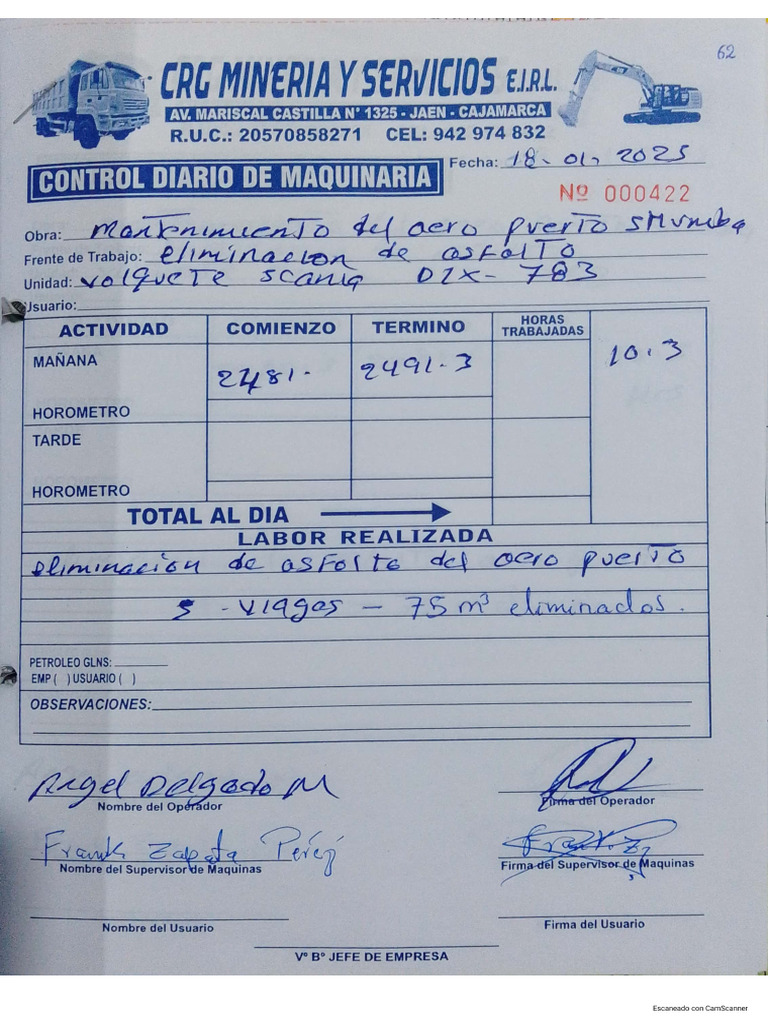 62
CRG MINERIA Y SERVICIOS E.I.R.L.
AV. MARISCAL CASTILLA N° 1325 - JAEN - CAJAMARCA
R.U.C.: 20570858271 CEL: 942 974 832
Fecha: 18-01. 2025
CONTROL DIARIO DE MAQUINARIA
Nº 000422
Obra: Mantenimiento del aero puerto
Frente de Trabajo: eliminacion de asfalto
Unidad: volquete scania D2X-783
Usuario:
ACTIVIDAD COMIENZO TERMINO HORAS TRABAJADAS
MAÑANA 2481. 2491.3 10.3
HOROMETRO
TARDE
HOROMETRO
TOTAL AL DIA
LABOR REALIZADA
eliminacion de asfalto del aero puerto
5 - viages - 75 m³ eliminados.
PETROLEO GLNS:
EMP ( ) USUARIO ( )
OBSERVACIONES:
Angel Delgado M
Nombre del Operador Firma del Operador
Frank Zapata Perez
Nombre del Supervisor de Maquinas Firma del Supervisor de Maquinas
Nombre del Usuario Firma del Usuario
Vº Bº JEFE DE EMPRESA
Escaneado con CamScanner